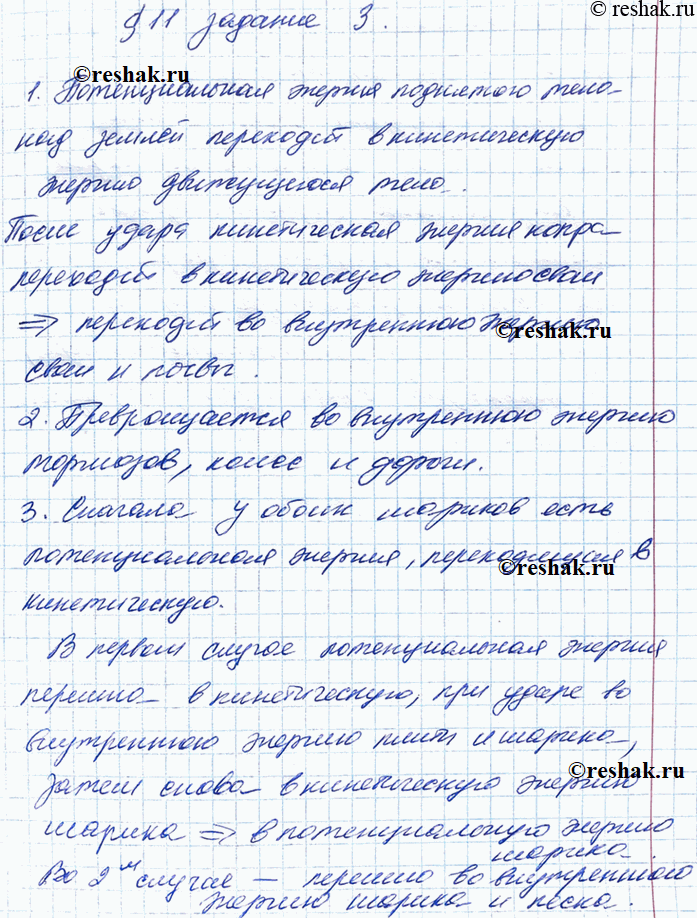 ©reshak.ru
§11 задание 3.
©reshak.ru
1. Потенциальная энергия поднятого тела
над землёй переходит в кинетическую
энергию движущегося тела.
После удара кинетическая энергия копра
переходит в кинетическую энергию сваи
©reshak.ru
=> переходит во внутреннюю энергию
сваи и почвы.
2. Превращается во внутреннюю энергию
тормозов, колёс и дороги.
3. Сначала у обоих шариков есть
потенциальная энергия, переходящая в
©reshak.ru
кинетическую.
В первом случае потенциальная энергия
перешла в кинетическую, при ударе во
внутреннюю энергию плиты и шарика,
©reshak.ru
затем снова в кинетическую энергию
шарика => в потенциальную энергию
шарика.
©reshak.ru
Во 2м случае – перешла во внутреннюю
энергию шарика и песка.